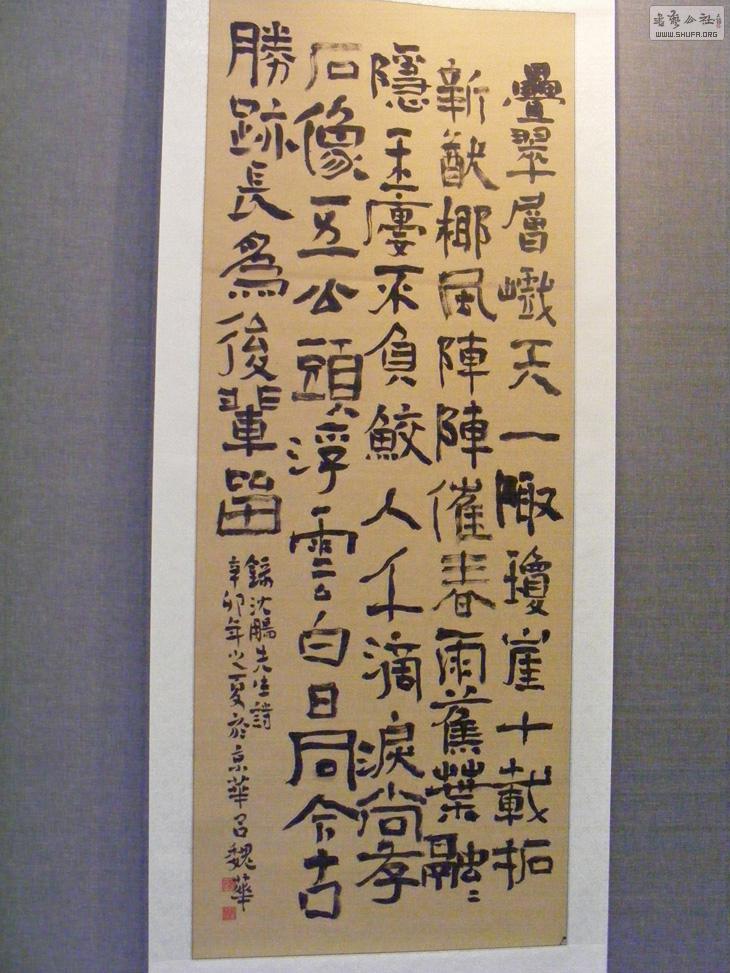 疊翠層天一陬瓊崖十載拓
新猷椰風陣陣催春雨蕉葉融〻
隱玉廔不負鮫人千滴淚尚存
石像五公頭浮雲白日同今古
勝跡長為後輩留
錄沈鵬先生詩
辛卯年之夏於京華呂魏華
書藝公社
WWW.SHUFA.ORG